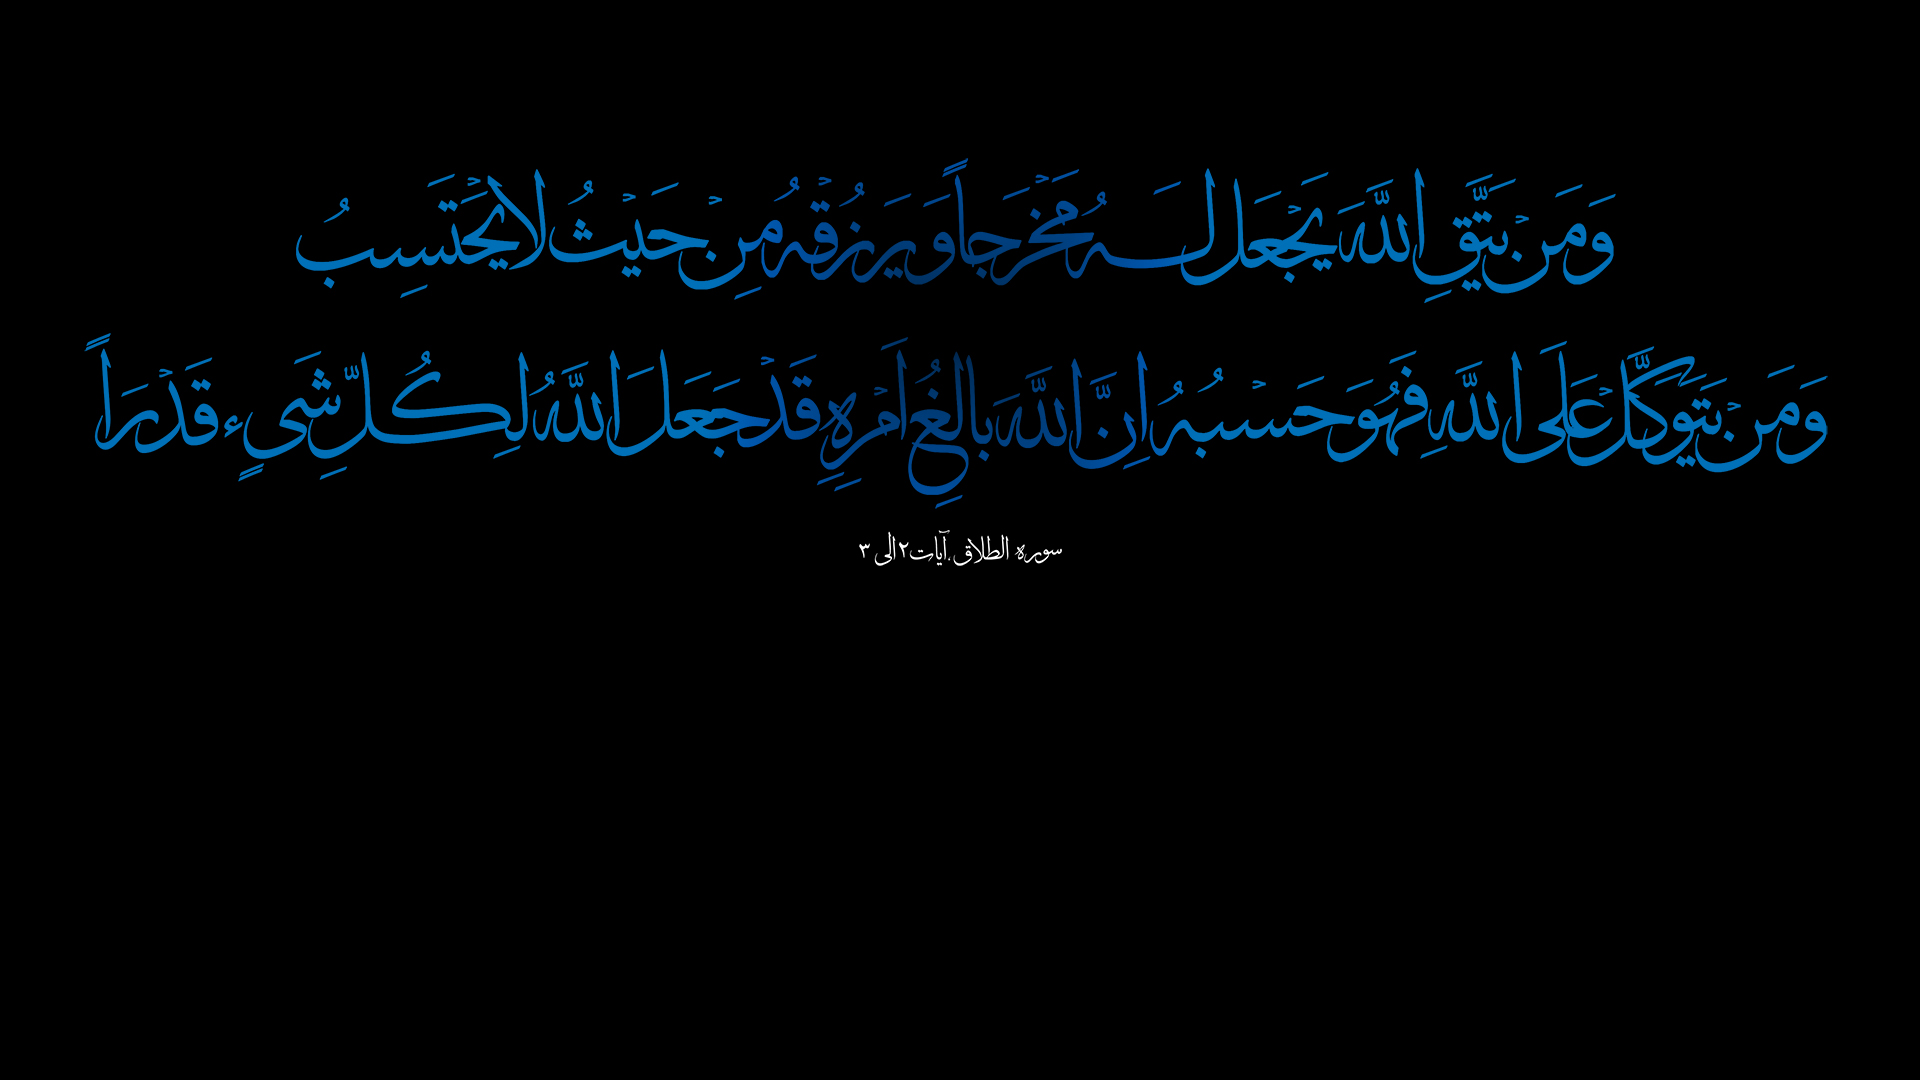 وَمَنْ يَتَّقِ اللَّهَ يَجْعَل لَهُ مَخْرَجاً وَيَرْزُقْهُ مِنْ حَيْثُ لَا يَحْتَسِبُ
وَمَنْ يَتَوَكَّلْ عَلَى اللَّهِ فَهُوَ حَسْبُهُ اِنَّ اللَّهَ بَالِغُ اَمْرِهِ قَدْ جَعَلَ اللَّهُ لِكُلِّ شَىءٍ قَدْرَاً
سوره الطلاق.آیات ۲ الی ۳